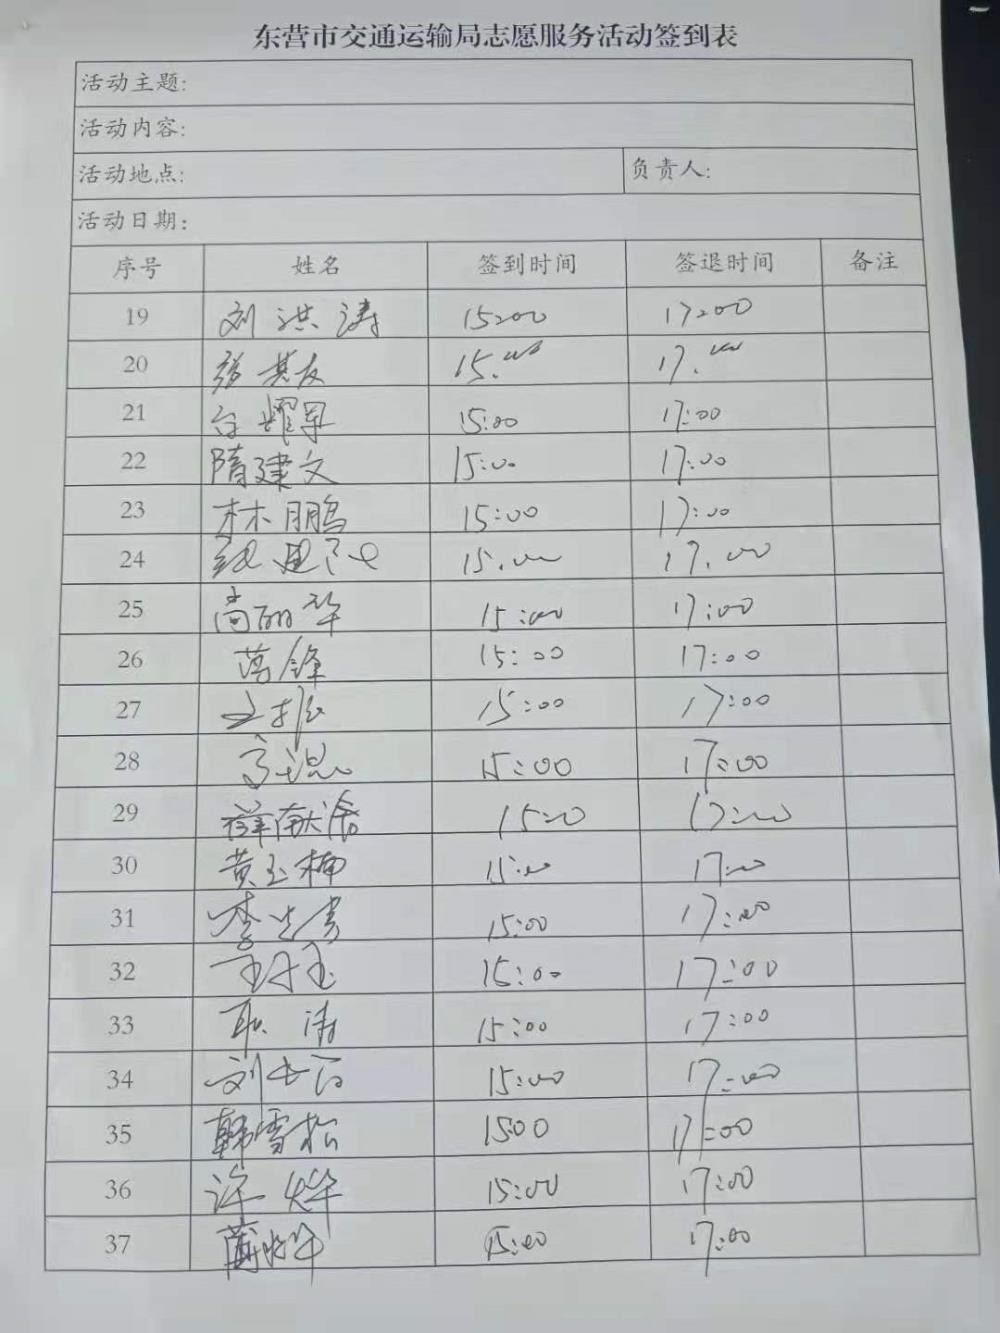 东营市交通运输局志愿服务活动签到表
活动主题:
活动内容:
活动地点: 负责人:
活动日期:
序号 姓名 签到时间 签退时间 备注
19 刘洪涛 15:00 17:00
20 张其友 15:00 17:00
21 15:00 17:00
22 隋建文 15:00 17:00
23 林鹏 15:00 17:00
24 15:00 17:00
25 尚丽华 15:00 17:00
26 蒋锋 15:00 17:00
27 15:00 17:00
28 15:00 17:00
29 15:00 17:00
30 黄玉楠 15:00 17:00
31 15:00 17:00
32 15:00 17:00
33 耿涛 15:00 17:00
34 15:00 17:00
35 韩雪松 1500 17:00
36 许烨 15:00 17:00
37 15:00 17:00